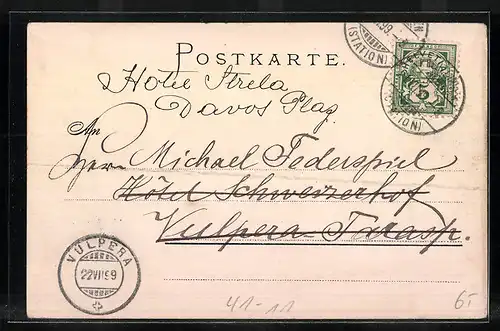 POSTKARTE.
Hotel Strela
Davos Plaz
An
Herrn Michael Federspiel
Hôtel Schweizerhof
Vulpera-Tarasp.
(STATION)
99
5
(STATION)
VULPERA
22 VII 99
41-11